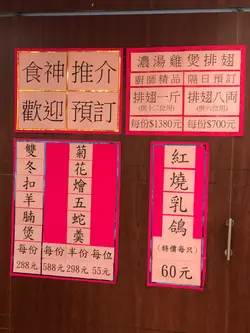 食神推介
歡迎預訂
濃湯雞煲排翅
廚師精品 隔日預訂
排翅一斤 排翅八両
(供十二位用) (供六位用)
每份$1380元 每份$700元
雙冬扣羊腩煲
每份
288元
菊花燴五蛇羹
每份 半份 每位
588元 298元 55元
紅燒乳鴿
(特價每只)
60元